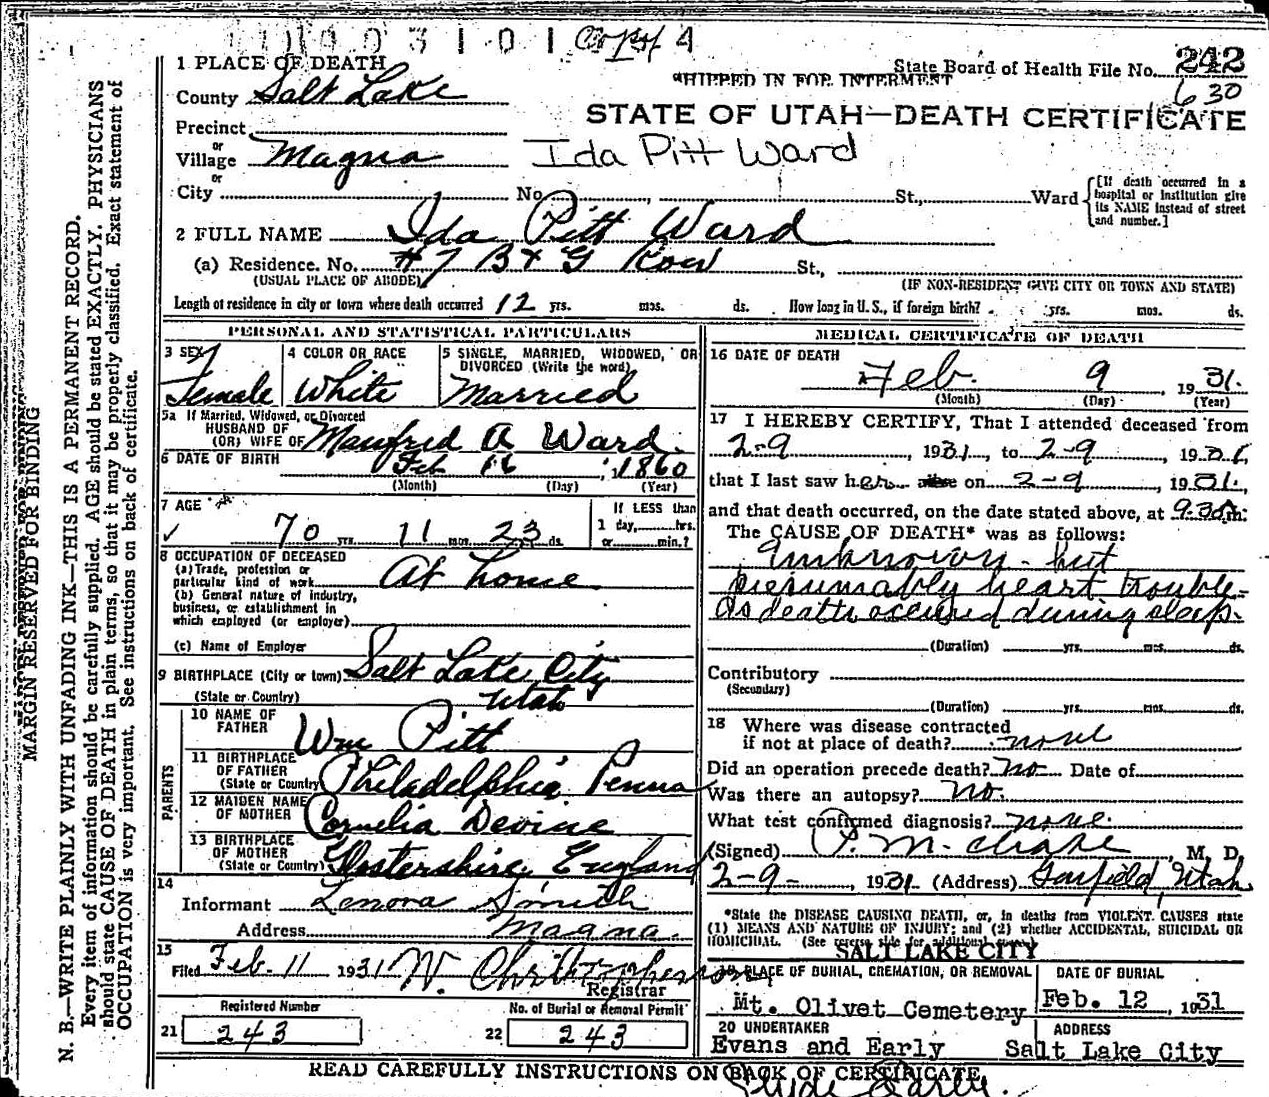 1 0 4 0 3 1 0 1 Copy 4
1 PLACE OF DEATH
County Salt Lake
State Board of Health File No. 242
630
SHIPPED IN FOR INTERMENT
STATE OF UTAH—DEATH CERTIFICATE
Precinct
or
Village Magna
Ida Pitt Ward
or
City No. St., Ward
[If death occurred in a hospital or institution give its NAME instead of street and number.]
2 FULL NAME Ida Pitt Ward
(a) Residence. No. #7 B & G Row St.,
(USUAL PLACE OF ABODE) (IF NON-RESIDENT GIVE CITY OR TOWN AND STATE)
Length of residence in city or town where death occurred 12 yrs. mos. ds. How long in U. S., if foreign birth? yrs. mos. ds.
PERSONAL AND STATISTICAL PARTICULARS
3 SEX Female
4 COLOR OR RACE White
5 SINGLE, MARRIED, WIDOWED, OR DIVORCED (Write the word) Married
5a If Married, Widowed, or Divorced
HUSBAND OF
(OR) WIFE OF Manfred A Ward
6 DATE OF BIRTH Feb 16, 1860
(Month) (Day) (Year)
7 AGE 70 yrs. 11 mos. 23 ds.
If LESS than
1 day, hrs.
or min.?
8 OCCUPATION OF DECEASED
(a) Trade, profession or
particular kind of work At home
(b) General nature of industry,
business, or establishment in
which employed (or employer)
(c) Name of Employer
9 BIRTHPLACE (City or town) Salt Lake City
(State or Country) Utah
PARENTS
10 NAME OF FATHER Wm Pitt
11 BIRTHPLACE OF FATHER (State or Country) Philadelphia Penna
12 MAIDEN NAME OF MOTHER Cornelia Devine
13 BIRTHPLACE OF MOTHER (State or Country) Glostershire England
14
Informant Lenora Smith
Address Magna.
15
Filed Feb. 11 1931 W. Christophenson
Registrar
Registered Number
21 243
No. of Burial or Removal Permit
22 243
MEDICAL CERTIFICATE OF DEATH
16 DATE OF DEATH
Feb. 9 1931.
(Month) (Day) (Year)
17 I HEREBY CERTIFY, That I attended deceased from
2-9, 1931, to 2-9, 1931,
that I last saw her alive on 2-9, 1931,
and that death occurred, on the date stated above, at 9:30 m:
The CAUSE OF DEATH* was as follows:
Unknown - but
presumably heart trouble-
as death occured during sleep.
(Duration) yrs. mos. ds.
Contributory
(Secondary)
(Duration) yrs. mos. ds.
18 Where was disease contracted
if not at place of death? none
Did an operation precede death? no Date of
Was there an autopsy? no.
What test confirmed diagnosis? none.
(Signed) P. M. Chase, M. D.
2-9-, 1931 (Address) Garfield, Utah
*State the DISEASE CAUSING DEATH, or, in deaths from VIOLENT CAUSES state
(1) MEANS AND NATURE OF INJURY; and (2) whether ACCIDENTAL, SUICIDAL OR
HOMICIDAL. (See reverse side for additional space)
SALT LAKE CITY
19 PLACE OF BURIAL, CREMATION, OR REMOVAL
Mt. Olivet Cemetery
DATE OF BURIAL
Feb. 12, 1931
20 UNDERTAKER
Evans and Early
ADDRESS
Salt Lake City
READ CAREFULLY INSTRUCTIONS ON BACK OF CERTIFICATE
Clyde Early.
MARGIN RESERVED FOR BINDING
N. B.—WRITE PLAINLY WITH UNFADING INK—THIS IS A PERMANENT RECORD.
Every item of information should be carefully supplied. AGE should be stated EXACTLY. PHYSICIANS
should state CAUSE OF DEATH in plain terms, so that it may be properly classified. Exact statement of
OCCUPATION is very important. See instructions on back of certificate.